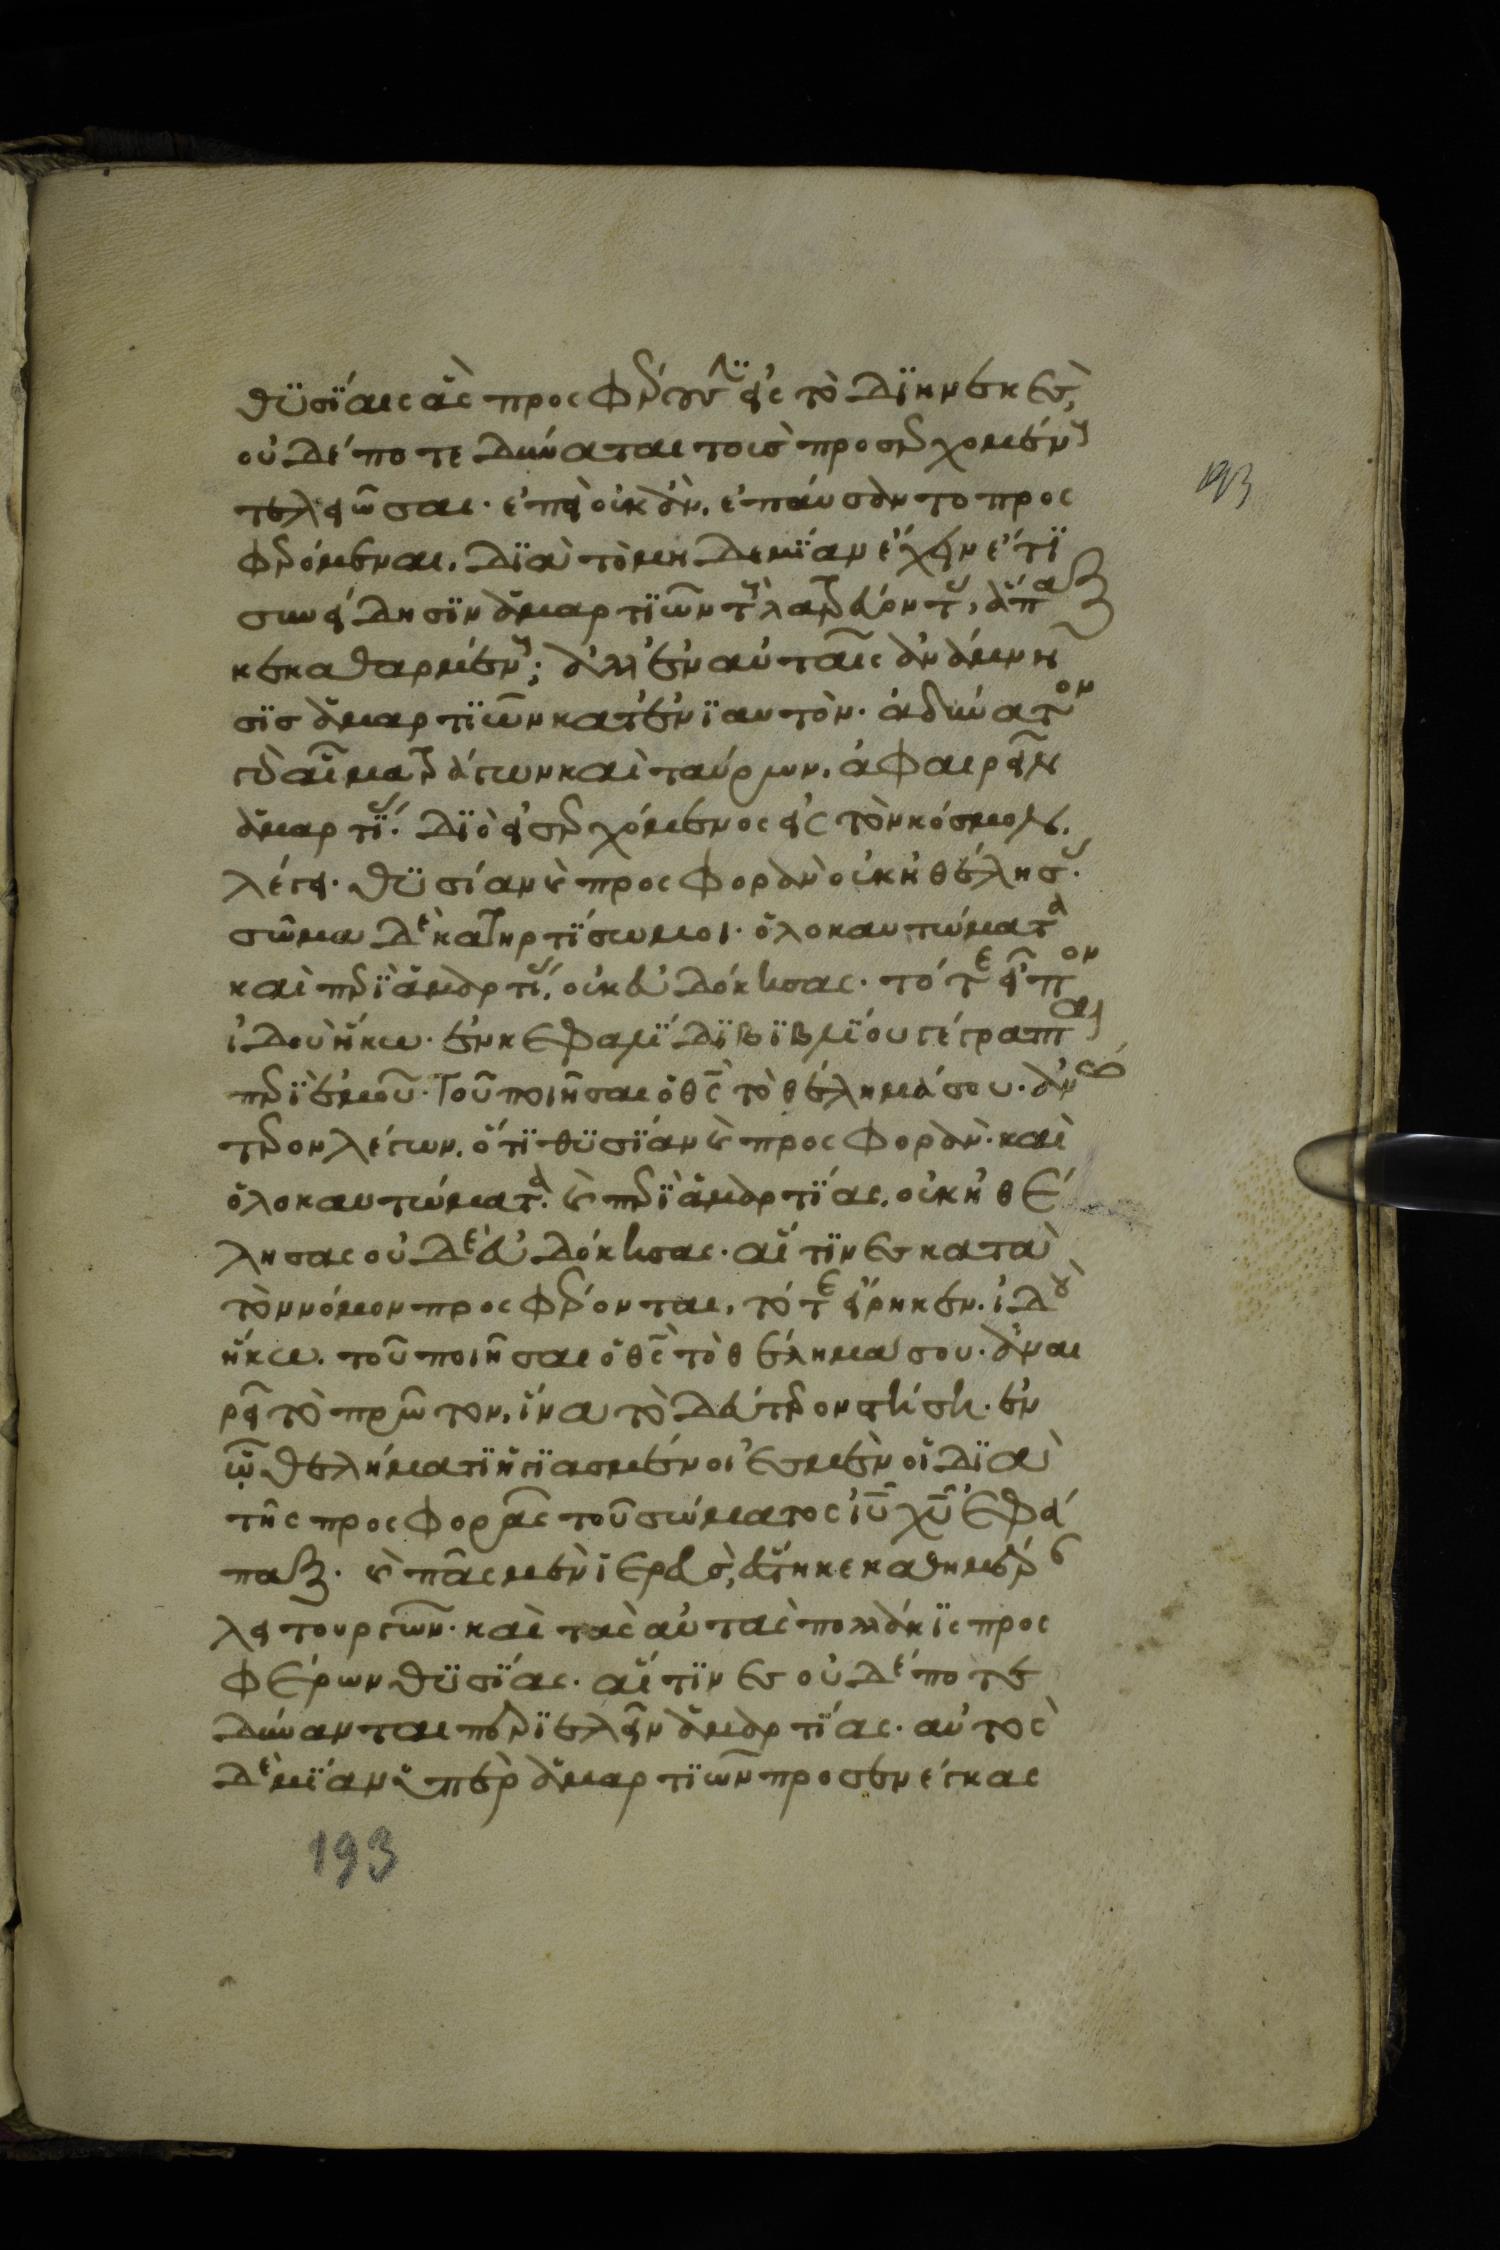 θϋσΐαις ἃς προςφέρουσϊν εἰς τὸ δϊηνεκὲς,
οὐδέποτε δύναται τοὺς προσερχομένους
τελειῶσαι· ἐπεὶ οὐκ ἂν, ἐπαύσαντο προς
φερόμεναι, δϊὰ τὸ μηδεμΐαν ἔχειν ἔτϊ
συνείδησϊν ἁμαρτϊῶν τοὺς λατρεύοντας, ἅπαξ
κεκαθαρμένους; ἀλλ' ἐν αὐταῖς ἀνάμνη
σϊς ἁμαρτϊῶν κατ' ἐνϊαυτὸν· ἀδύνατον
γὰρ αἷμα τράγων καὶ ταύρων, ἀφαιρεῖν
ἁμαρτΐας· δϊὸ εἰσερχόμενος εἰς τὸν κόσμον,
λέγει· θϋσίαν καὶ προςφορὰν οὐκ ἠθέλησας·
σῶμα δὲ κατηρτΐσω μοι· ὁλοκαυτώματα
καὶ περῒ ἁμαρτΐας, οὐκ εὐδόκησας· τότε εἶπον
ἰδοὺ ἥκω· ἐν κεφαλΐδϊ βϊβλΐου γέγραπται
περῒ ἐμοῦ· τοῦ ποιῆσαι ὁ θς τὸ θέλημά σου· ἀνώ
τερον λέγων, ὅτϊ θϋσΐαν καὶ προςφορὰν· καὶ
ὁλοκαυτώματα· καὶ περῒ ἁμαρτΐας, οὐκ ἠθέ
λησας οὐδὲ εὐδόκησας· αἵτϊνες κατὰ
τὸν νόμον προςφέρονται, τότε εἴρηκεν· ἰδοὺ
ἥκω· τοῦ ποιῆσαι ὁ θς τὸ θέλημα σου· ἀναι
ρεῖ τὸ πρῶτον, ἵνα τὸ δεύτερον στήσῃ· ἐν
ᾧ θελήματϊ ἡγϊασμένοι ἐσμὲν οἱ δϊὰ
τῆς προςφορᾶς τοῦ σώματος ιυ χυ ἐφά
παξ· καὶ πᾶς μὲν ἱερεὺς, ἕστηκε καθημέραν
λειτουργῶν· καὶ τὰς αὐτὰς πολλάκϊς προς
φέρων θϋσΐας· αἵτϊνες οὐδέποτε
δύνανται περϊελεῖν ἁμαρτΐας· αὐτὸς
δὲ μΐαν ὑπὲρ ἁμαρτϊῶν προσενέγκας
193
193